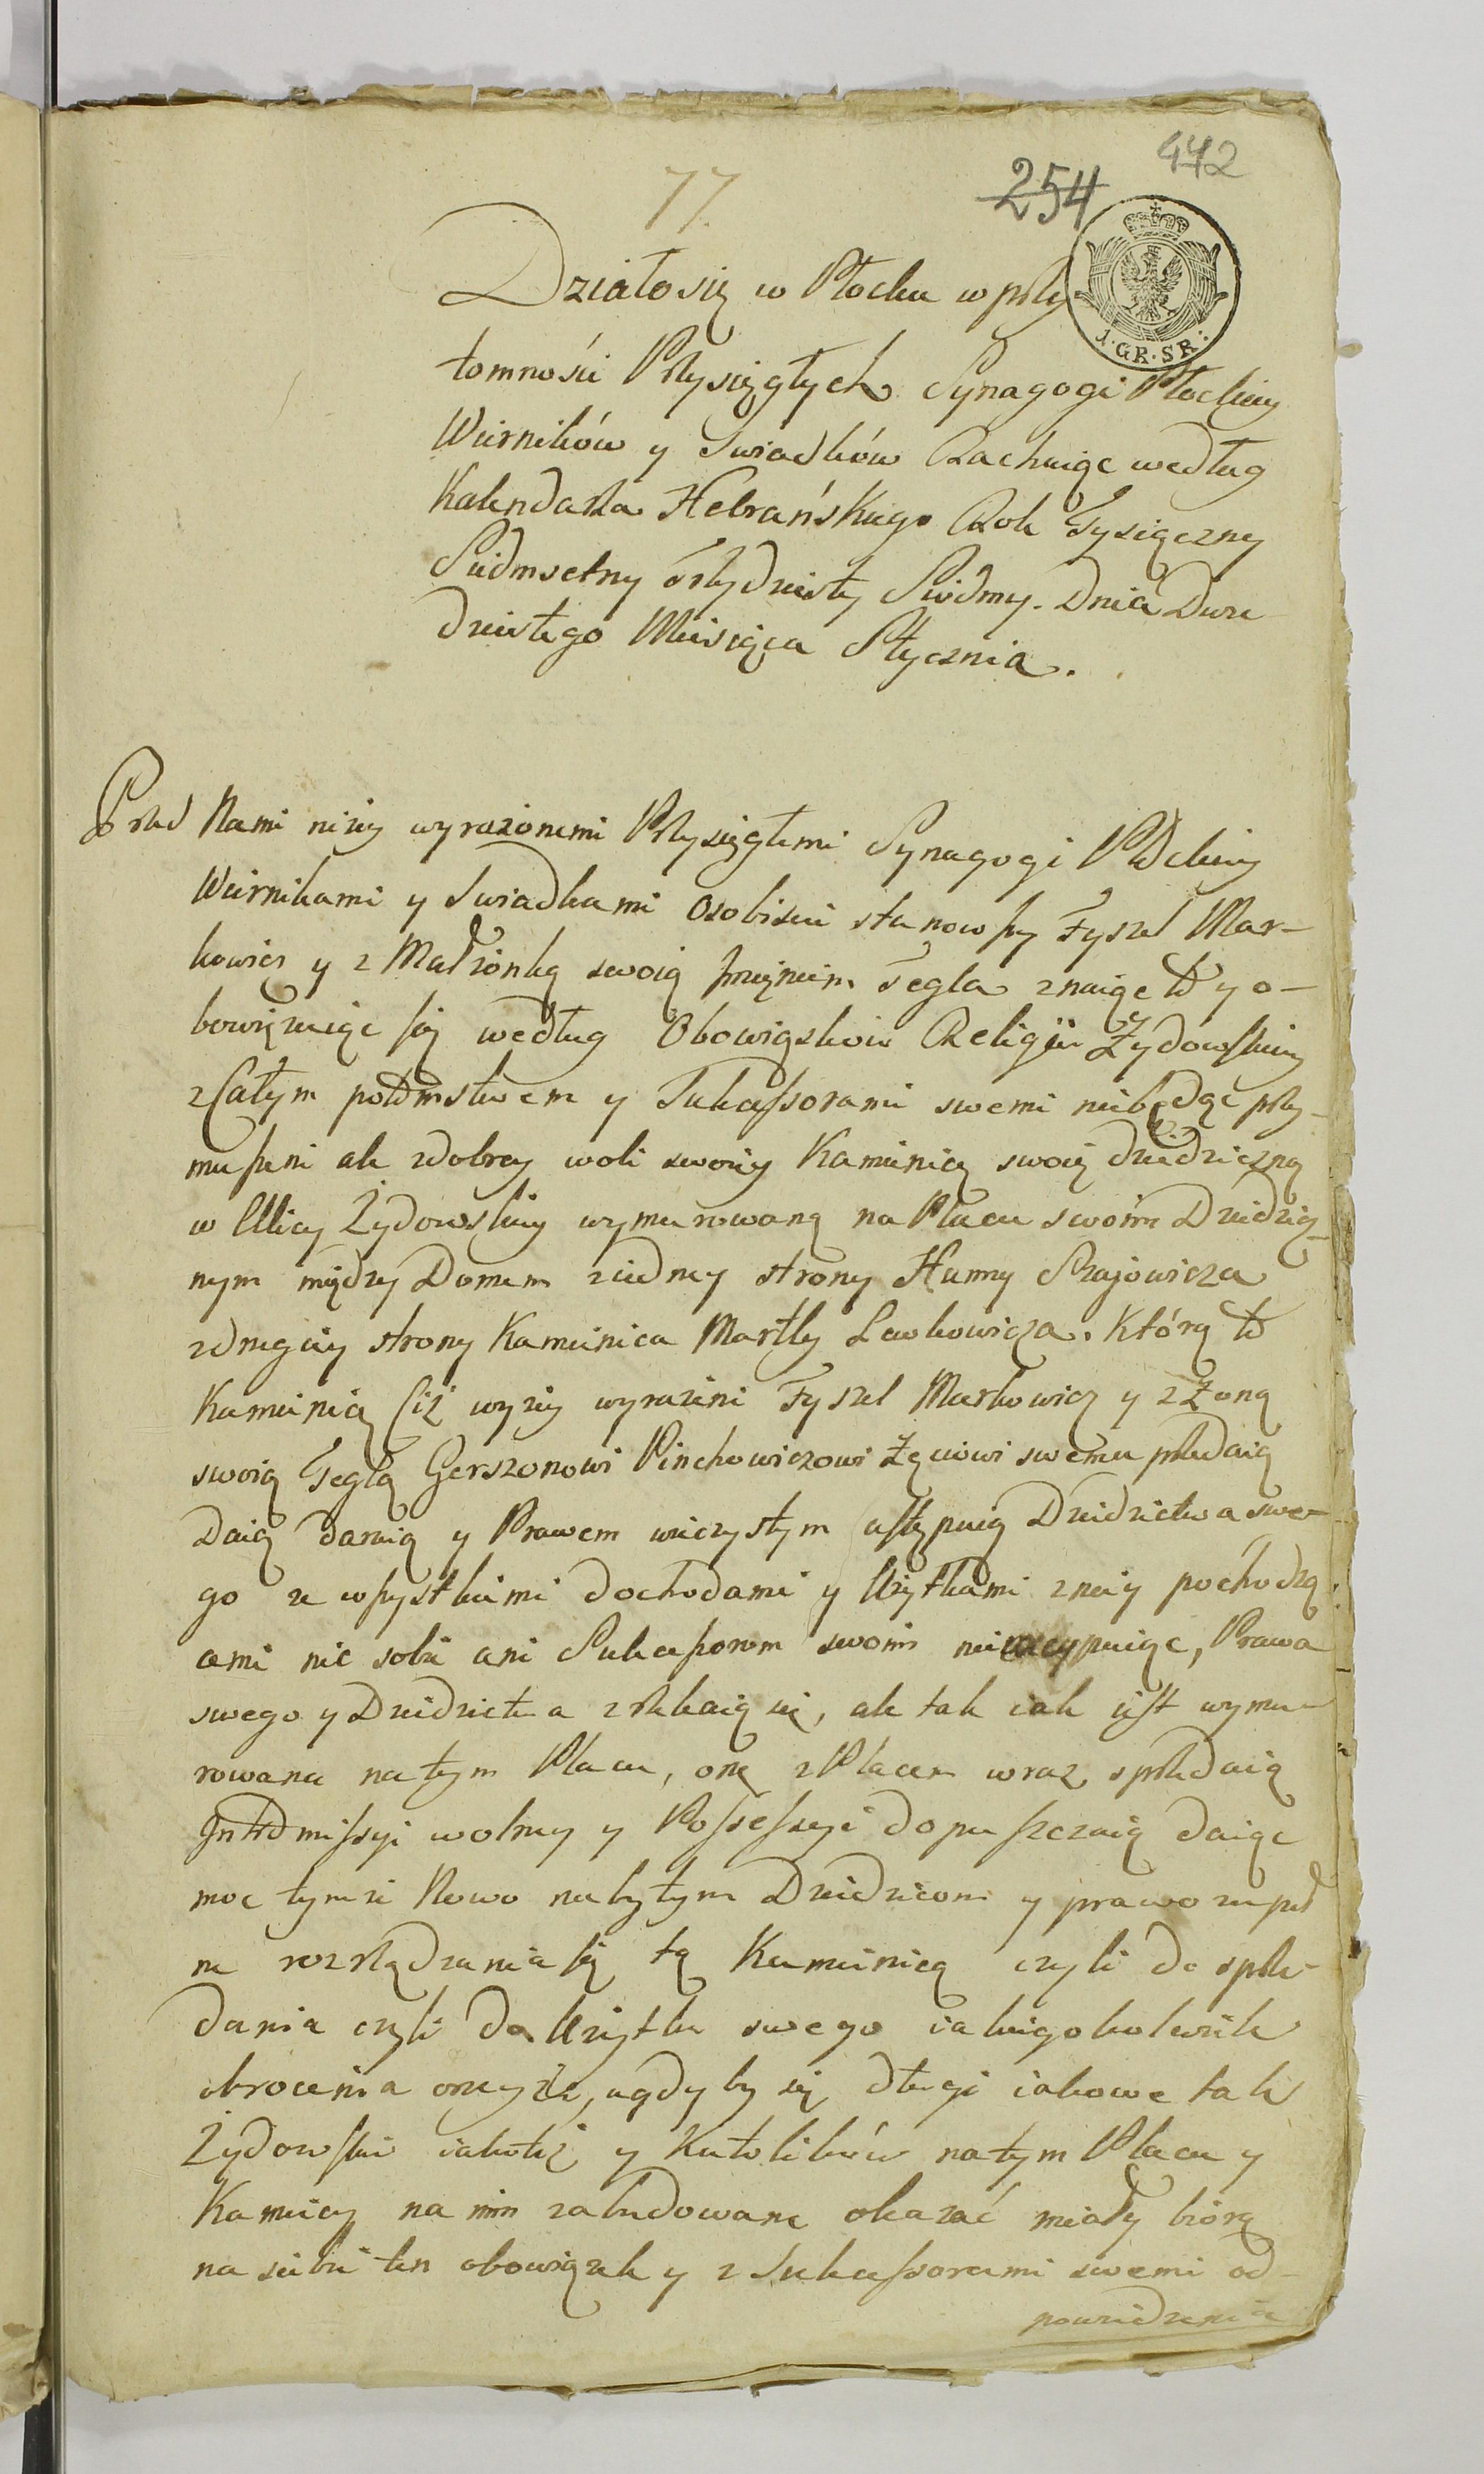 472
254
77.
Działo się w Płocku w przy
1. GR. SR.
tomności Przysięgłych Synagogi Płockiey
Wiernikow y Swiadków Rachuiąc według
Kalendarza Hebrańskiego Rok Tysiączny
Siedmsetny Trzydziesty Siodmy. Dnia Dwu
dziestego Miesiąca Stycznia.
Przed Nami niżey wyrażonemi Przysięgłemi Synagogi Płockiey
Wiernikami y Swiadkami Osobiscie stanowszy Fyszel Mar-
kowicz y z Małżonką swoią Imieniem Tegla znaiąc to y o-
bowięzuiąc się według Obowiązkow Religii Żydowskiey
z Całym potomstwem y Sukcessorami swemi niebędąc przy-
muszeni ale z dobrey woli swoiey Kamienicę swoię dziedziczną
w Ulicy Żydowskiey wymurowaną na Placu swoim Dziedzicz-
nym między Domem ziedney strony Hanny Szajowicza
z drugiey strony Kamienica Martky Lewkowicza. Którą to
Kamienicę Ciż wyżey wyrażeni Fyszel Markowicz y z Żoną
swoią Teglą Gerszonowi Pinchowiczowi Zęciowi swemu przedaią
Daią daruią y Prawem wieczystym ustępuią Dziedzictwa swe-
go ze wszystkiemi dochodami y Użytkami zniey pochodzą
cemi nic sobie ani Sukcessorom swoim nie excypuiąc, Prawa
swego y Dziedzictwa zrzekaią się, ale tak iak iest wymu-
rowana na tym Placu, onę z Placem wraz sprzedaią
Intromissyi wolney y Possessyi dopuszczaią daiąc
moc tymże Nowo nabytym Dziedzicom y prawo zupeł
ne rozrządzania się tą Kamienicą czyli do sprze-
dania czyli do Użytku swego iakiegokolwiek
obrocenia oneyże, agdyby się długi iakowe tak
Żydowskie iakoteż y Katolików na tym Placu y
Kamicy na nim zabudowane okazać miały biorą
na siebie ten obowiązek y z Sukcessorami swemi od-
powiedzenia